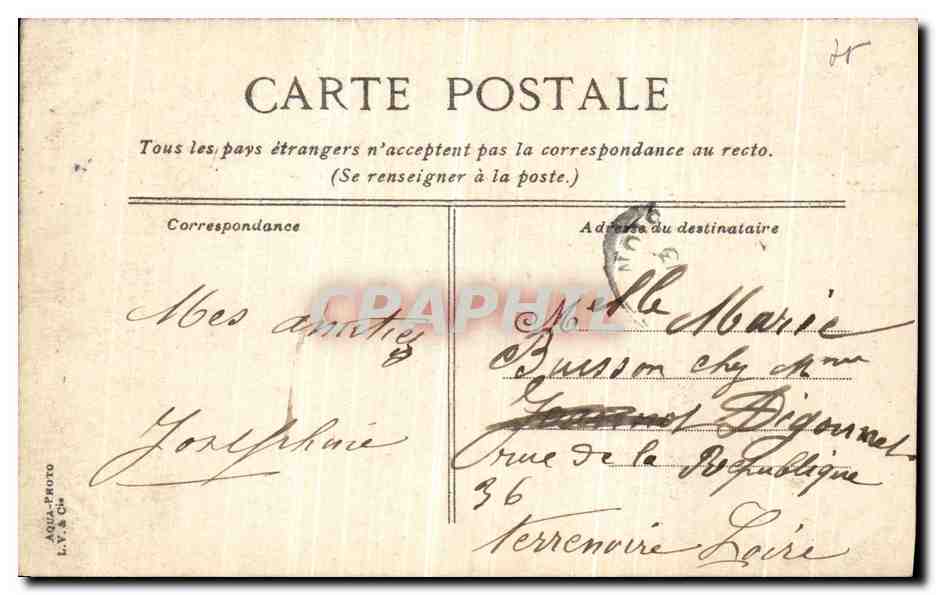 CARTE POSTALE
Tous les pays étrangers n'acceptent pas la correspondance au recto.
(Se renseigner à la poste.)
Correspondance
Adresse du destinataire
Mes amitiés
Josephine
Melle Marie
Buisson chez Mme
Digonnet
rue de la Republique
36
Terrenoire Loire
AQUA-PHOTO
L.V. & Cie
CPAPHIL